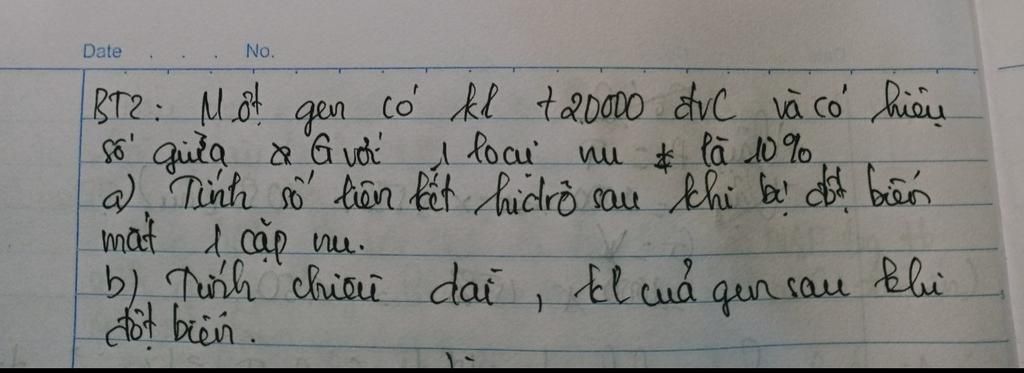 Date . . . No.
BT2: Một gen có kl 720000 đvC và có hiệu
số giữa G với 1 loại nu * là 10%
a) Tính số liên kết hiđrô sau khi bị đột biến
mất 1 cặp nu.
b) Tính chiều dài, kl của gen sau khi
đột biến.